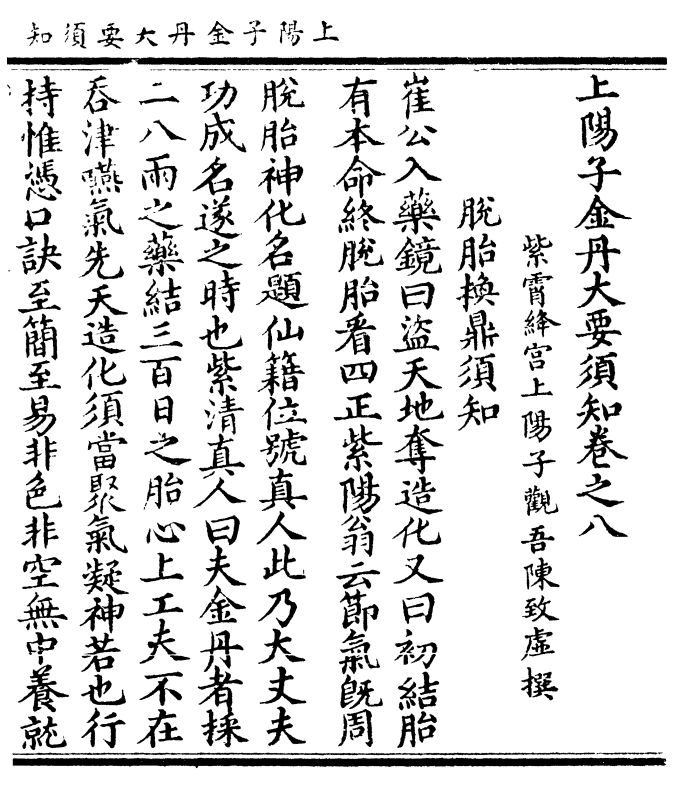 上陽子金丹大要須知
上陽子金丹大要須知卷之八
紫霄絳宮上陽子觀吾陳致虛撰
脫胎換鼎須知
崔公入藥鏡曰盜天地奪造化又曰初結胎
有本命終脫胎看四正紫陽翁云節氣旣周
脫胎神化名題仙籍位號真人此乃大丈夫
功成名遂之時也紫清真人曰夫金丹者採
二八兩之藥結三百日之胎心上工夫不在
吞津嚥氣先天造化須當聚氣凝神若也行
持惟憑口訣至簡至易非色非空無中養就